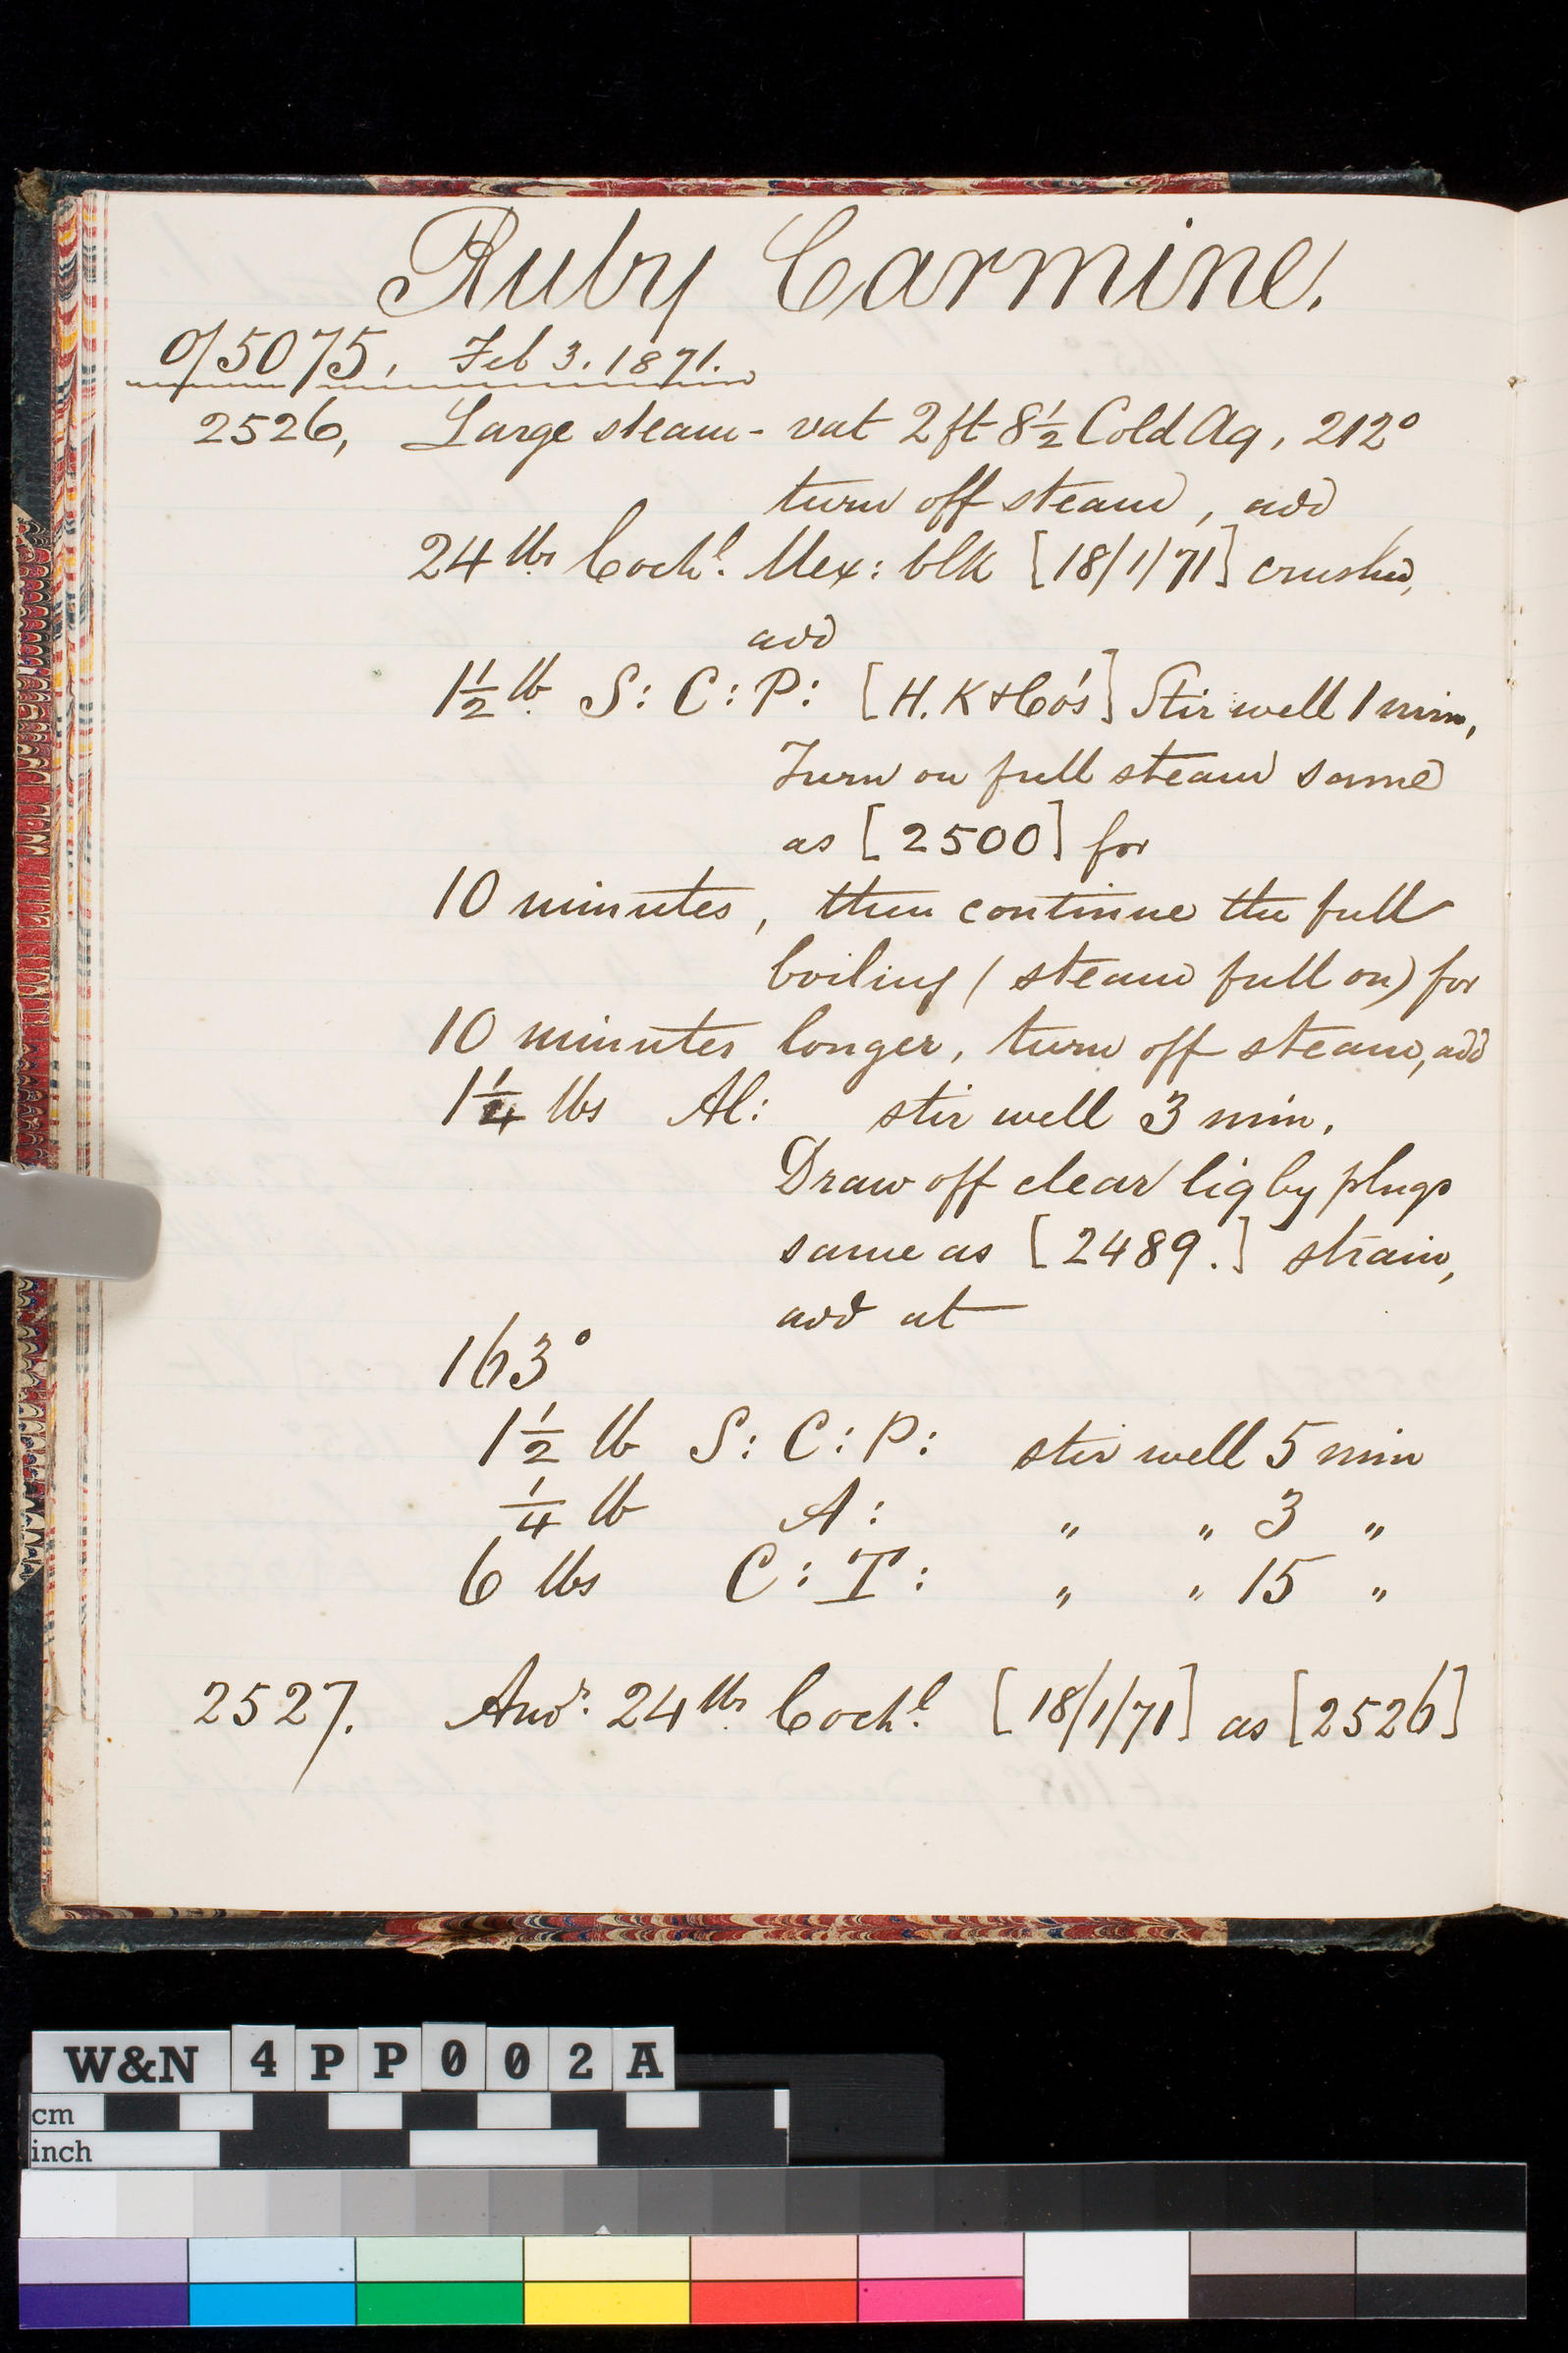 Ruby Carmine.
o/5075, Feb 3. 1871.
2526, Large steam-vat 2ft 8½ Cold Aq, 212°
turn off steam, add
24 lbs Cochl. Mex: blk [18/1/71] crushed,
add
1½ lb S: C: P: [H. K & Co's] Stir well 1 min,
Turn on full steam same
as [2500] for
10 minutes, then continue the full
boiling (steam full on) for
10 minutes longer, turn off steam, add
1¼ lbs Al: stir well 3 min.
Draw off clear liq by plugs
same as [2489.] strain,
add at
163°
1½ lb S: C: P: stir well 5 min
¼ lb A: " " 3 "
6 lbs C: T: " " 15 "
2527. Anor. 24 lbs Cochl. [18/1/71] as [2526]
W&N 4PP002A
cm
inch